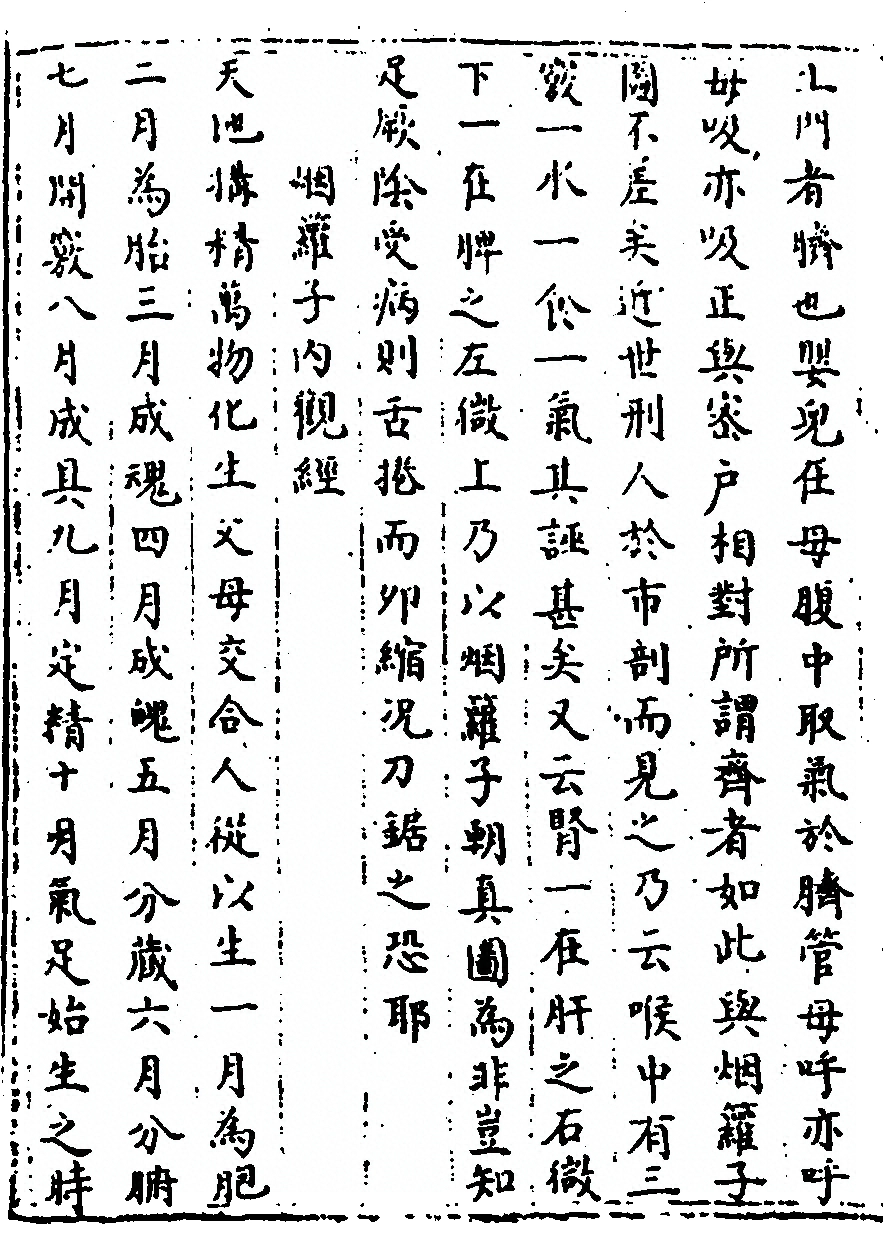 上門者臍也嬰兒在母腹中取氣於臍管母呼亦呼
母吸亦吸正與密戶相對所謂齊者如此與烟蘿子
圖不差矣近世刑人於市剖而見之乃云喉中有三
竅一水一飱一氣其誣甚矣又云腎一在肝之右微
下一在脾之左微上乃以烟蘿子朝真圖為非豈知
足厥陰受病則舌捲而卵縮況刀鋸之恐耶
烟蘿子内觀經
天地搆精萬物化生父母交合人從以生一月為胞
二月為胎三月成魂四月成魄五月分藏六月分腑
七月開竅八月成具九月定精十月氣足始生之時